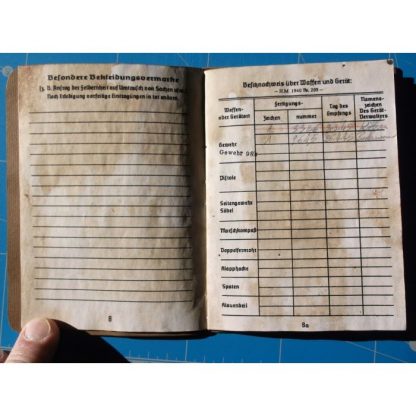 Besondere Bekleidungsvermerke
(z. B. Antrag der Feldeinheit auf Umtausch von Sachen usw.)
Nach Erledigung vorseitige Eintragungen in rot ändern.
8
Besitznachweis über Waffen und Gerät:
– H.M. 1940 Nr. 209 –
Waffen-
oder Geräteart
Fertigungs-
Zeichen
nummer
Tag des
Empfangs
Namens-
zeichen
Des Gerät-
Verwalters
Gewehr
Gewehr 98k
Pistole
Seitengewehr
Säbel
Marschkompaß
Doppelfernrohr
Klapphacke
Spaten
8a